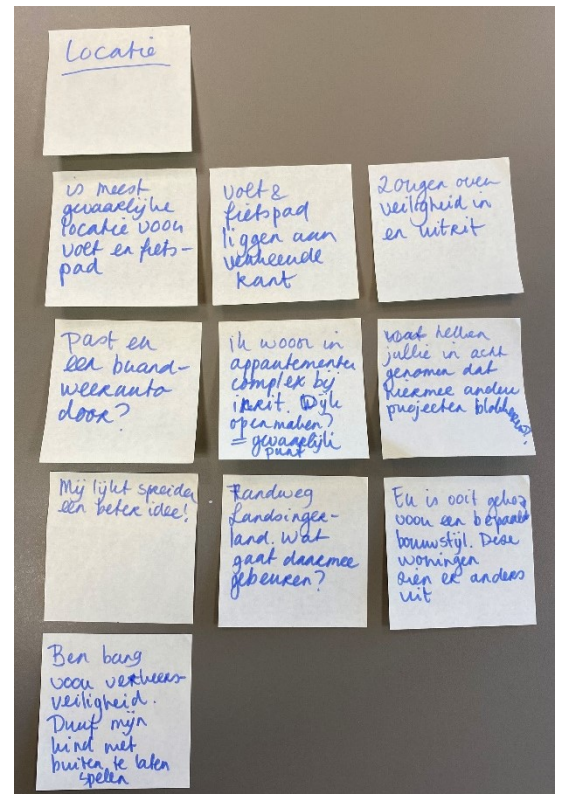 Locatie
is meest
gevaarlijke
locatie voor
voet en fiets-
pad
voet &
fietspad
liggen aan
verkeerde
kant
Zorgen over
veiligheid in
en uitrit
Past er
een brand-
weerauto
door?
ik woon in
appartementen
complex bij
inrit. Dijk
openmaken?
= gevaarlijk
punt
Wat hebben
jullie in acht
genomen dat
hiermee andere
projecten blokkeren?
Mij lijkt spreiden
een beter idee!
Randweg
Lansinger-
land. Wat
gaat daarmee
gebeuren?
Er is ooit gekozen
voor een bepaalde
bouwstijl. Deze
woningen
zien er anders
uit
Ben bang
voor verkeers-
veiligheid.
Durf mijn
kind niet
buiten te laten
spelen